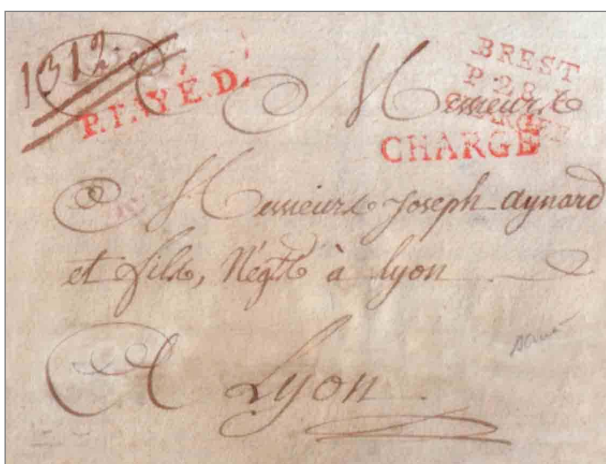 1312
P. PAYÉ. D.
BREST
P. 28.
CHARGÉ
CHARGÉ
Messieurs
Messieurs Joseph Aynard
et fils, Négts à Lyon
A Lyon